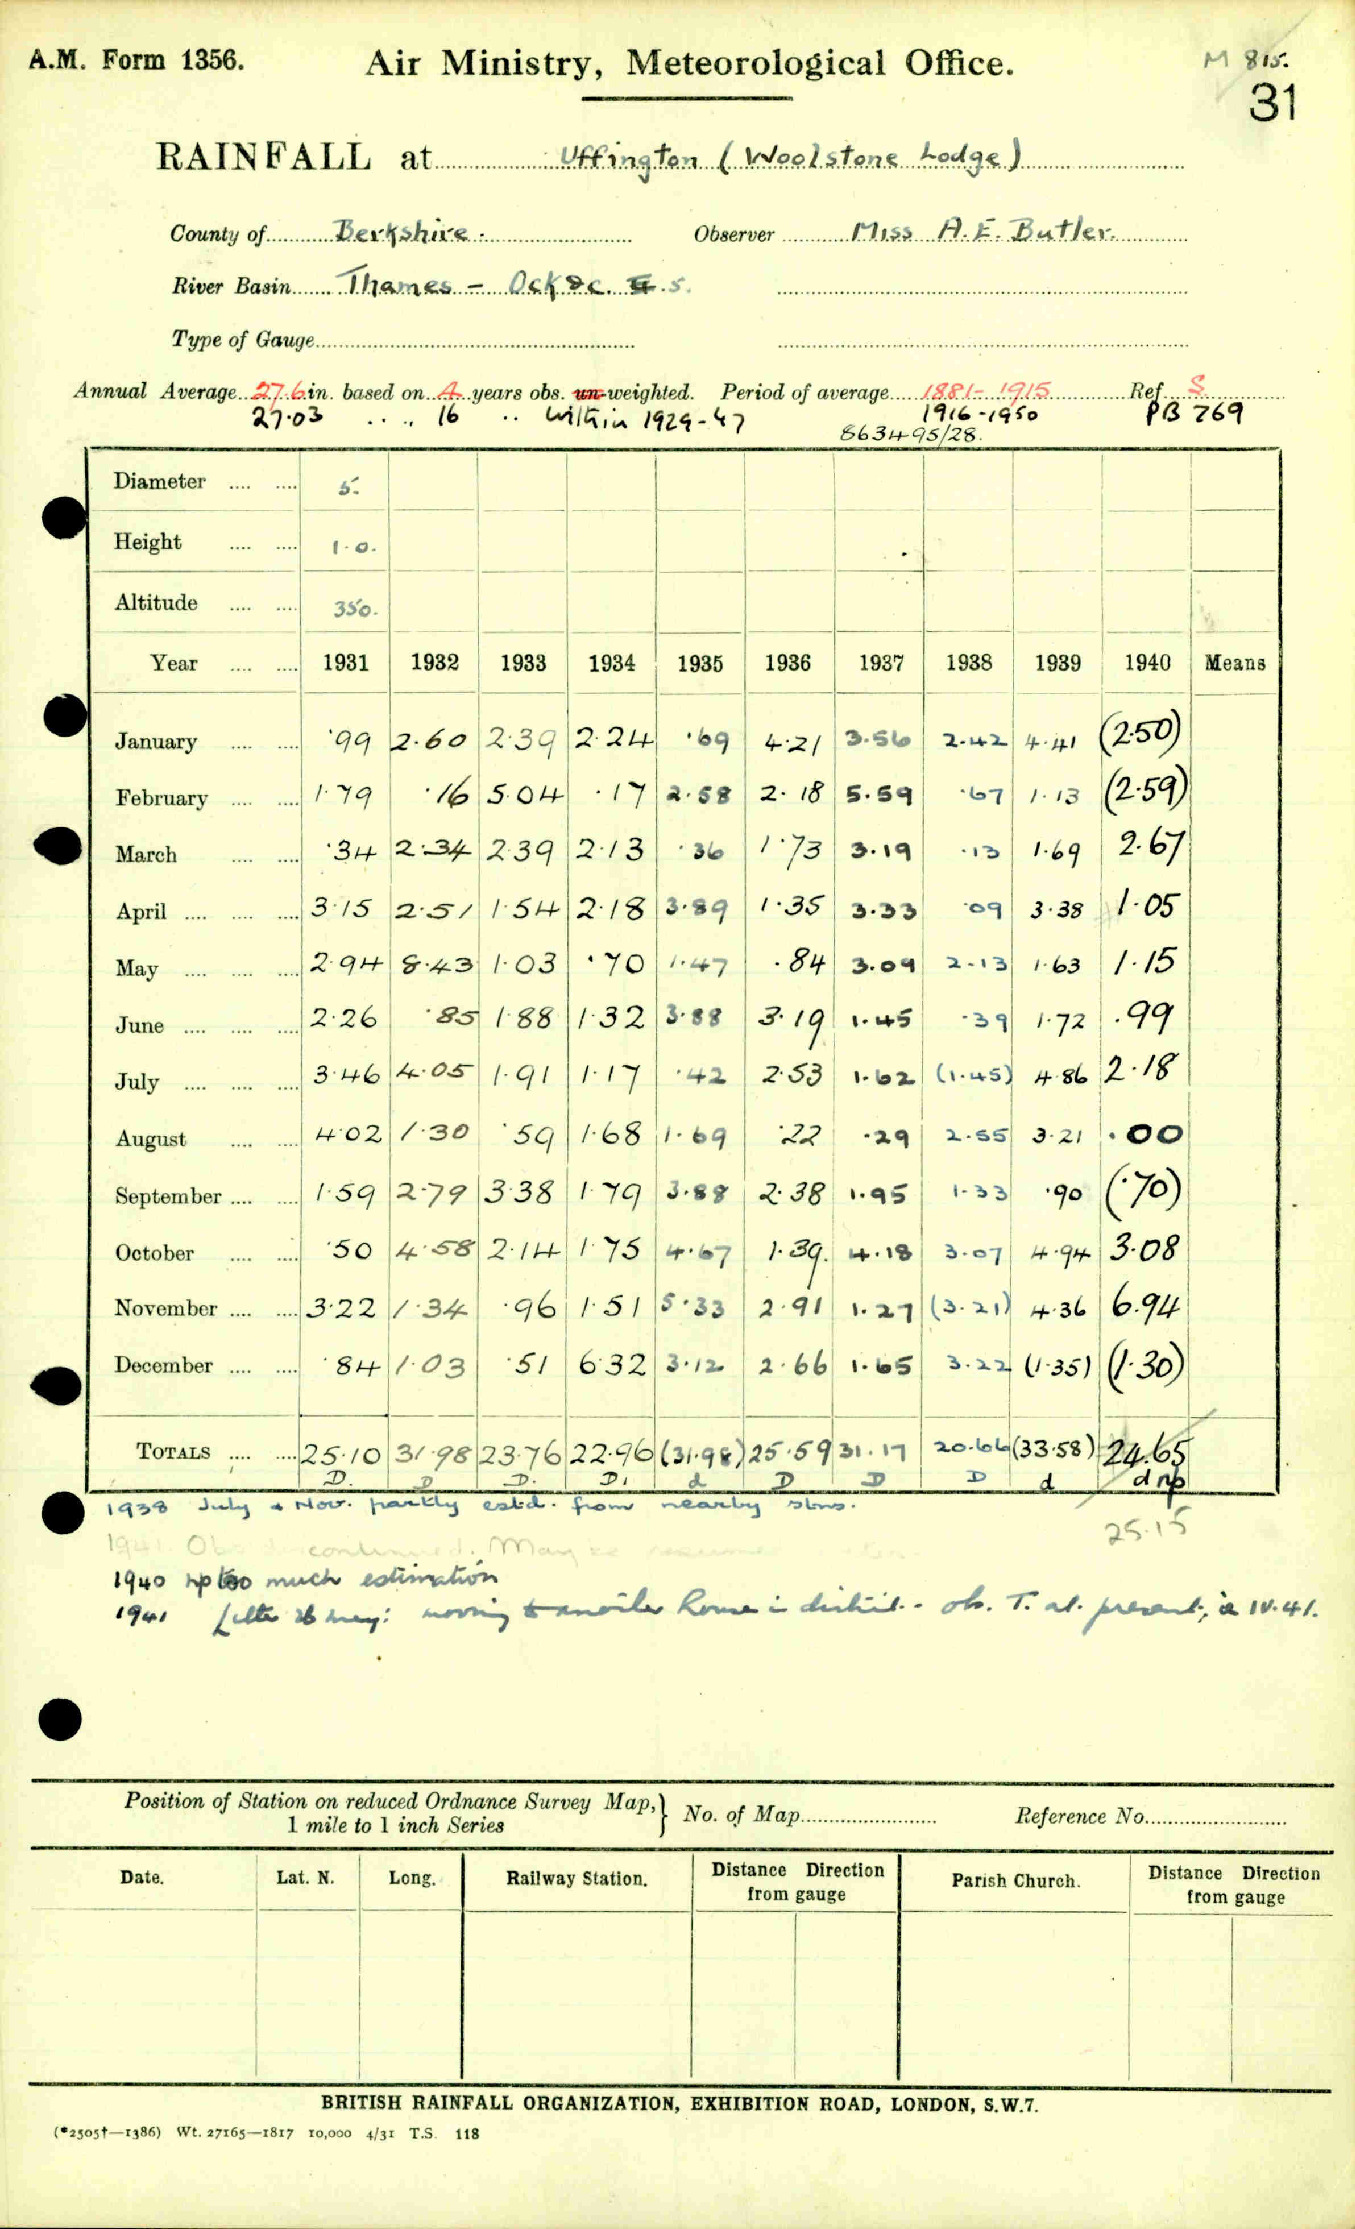 A.M. Form 1356. Air Ministry, Meteorological Office. M 815.
31
RAINFALL at Uffington (Woolstone Lodge)
County of Berkshire. Observer Miss A.E. Butler.
River Basin Thames – Ock &c. 5.
Type of Gauge
Annual Average 27.6 in. based on A years obs. un-weighted. Period of average 1881–1915 Ref. S
27.03 .. .. 16 .. within 1929-47 1916-1950 PB 769
863495/28.
Diameter .... .... 5.
Height .... .... 1.0.
Altitude .... .... 350.
Year .... .... 1931 1932 1933 1934 1935 1936 1937 1938 1939 1940 Means
January .... .... .99 2.60 2.39 2.24 .69 4.21 3.56 2.42 4.41 (2.50)
February .... .... 1.79 .16 5.04 .17 2.58 2.18 5.59 .67 1.13 (2.59)
March .... .... .34 2.34 2.39 2.13 .36 1.73 3.19 .13 1.69 2.67
April .... .... .... 3.15 2.51 1.54 2.18 3.89 1.35 3.33 .09 3.38 1.05
May .... .... .... 2.94 8.43 1.03 .70 1.47 .84 3.09 2.13 1.63 1.15
June .... .... .... 2.26 .85 1.88 1.32 3.88 3.19 1.45 .39 1.72 .99
July .... .... .... 3.46 4.05 1.91 1.17 .42 2.53 1.62 (1.45) 4.86 2.18
August .... .... 4.02 1.30 .59 1.68 1.69 .22 .29 2.55 3.21 .00
September .... .... 1.59 2.79 3.38 1.79 3.88 2.38 1.95 1.33 .90 (.70)
October .... .... .50 4.58 2.14 1.75 4.67 1.39. 4.18 3.07 4.94 3.08
November .... .... 3.22 1.34 .96 1.51 5.33 2.91 1.27 (3.21) 4.36 6.94
December .... .... .84 1.03 .51 6.32 3.12 2.66 1.65 3.22 (1.35) (1.30)
TOTALS .... .... 25.10 31.98 23.76 22.96 (31.98) 25.59 31.17 20.66 (33.58) 24.65
D. D D. D. d D D D d d np
1938 July & Nov. partly estd. from nearby stns.
25.15
1941. Obs discontinued. May be
1940 np too much estimation
1941 Letter 26 May: moving to another house in district - obs. T. at present, is IV.41.
Position of Station on reduced Ordnance Survey Map, } No. of Map Reference No.
1 mile to 1 inch Series
Date. Lat. N. Long. Railway Station. Distance Direction Parish Church. Distance Direction
from gauge from gauge
BRITISH RAINFALL ORGANIZATION, EXHIBITION ROAD, LONDON, S.W.7.
(*2505†—1386) Wt. 27165—1817 10,000 4/31 T.S. 118